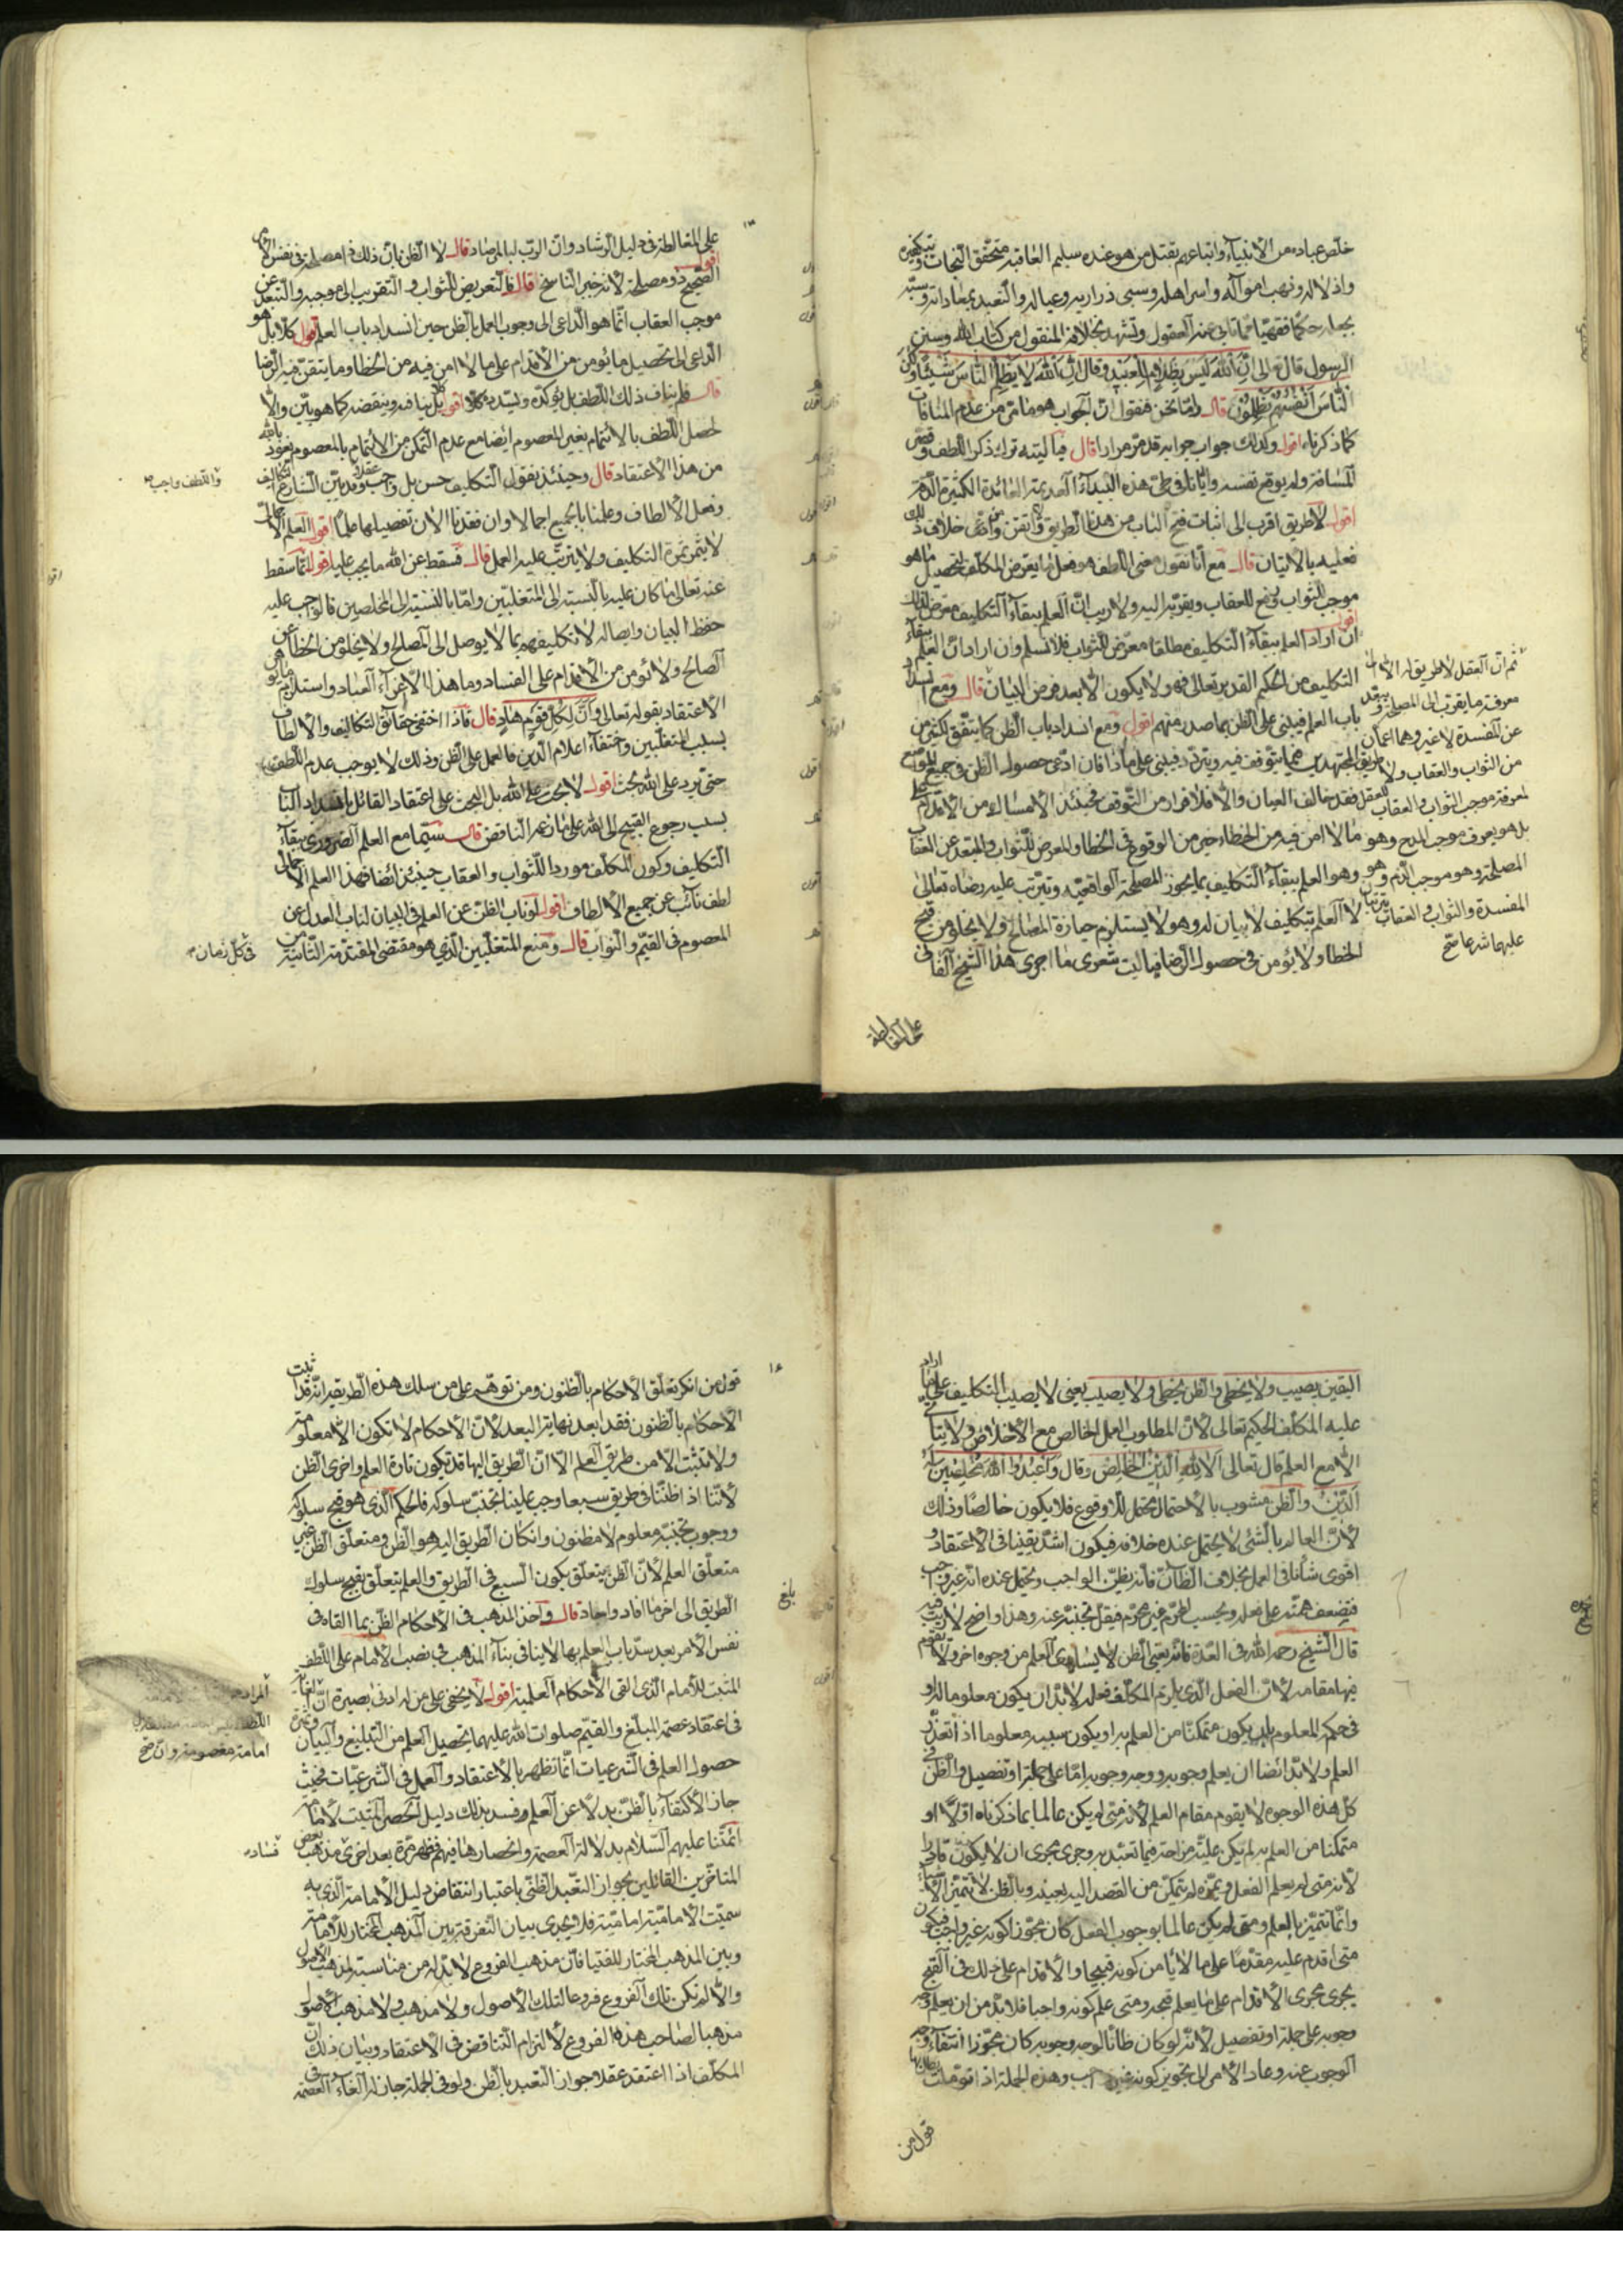 خلّص عباده من الأنبياء واتباعهم بقتل من هو عنده سليم العاقبة متحقق النجات وتكفيره
واذلاله ونهب امواله واسر اهله وسبى ذراريه وعياله والتعبد بمعاداته وسبّه
حكما فقهيّا مما تابى عنه العقول وتشهد بخلافه المنقول من كتاب الله وسنن
الرسول قال تعالى انّ الله ليس بظلام للعبيد وقال انّ الله لا يظلم الناس شيئا ولكن
الناس انفسهم يظلمون قال وامّا نحن فنقول انّ الجواب هو ما مرّ من عدم المنافات
كما ذكرناه اقول ولذلك جواب جوابه قد مرّ مرارا قال فيا ليته ترك ذكر اللطف وقصر
المسافة ولم يوقع نفسه وايّانا فى طىّ هذه البيداء العديمة الفائدة الكثيرة
اقول لا طريق اقرب الى اثبات فتح الباب من هذا الطريق ولا اتقن ومن ادّعى خلاف ذلك
فعليه بالاتيان قال مع انّا نقول معنى اللطف هو فعل ما يعرّض المكلّف لتحصيل ما هو
موجب للثواب ودفع للعقاب ويقرّبه اليه ولا ريب انّ العلم ببقاء التكاليف معرّض لذلك
اقول ان اراد العلم ببقاء التكليف مطلقا معرّض للثواب فلا نسلم وان اراد انّ العلم ببقاء
التكليف من الحكيم القدير تعالى فهو ولا يكون الا بعد فرض البيان قال ومع انسداد
باب العلم فيبنى على الظن بما صدر منهم اقول ومع انسداد باب الظن كما يتّفق لكثير من
المجتهدين مما يتوقف فيه ويتردد فيبنى على ماذا فان ادّعى حصول الظن فى جميع المواضع
فقد خالف العيان والا فلا فرار من التوقف فحينئذ الامساك من الاقدام على
ما لا امن فيه من الخطاء خير من الوقوع فى الخطا والمعرض للثواب والمبعد عن العقاب
وهو العلم ببقاء التكليف بما يحوز المصلحة الواقعيّة ويترتب عليه رضاه تعالى
لا العلم بتكليف لا بيان له وهو لا يستلزم حيازة المصالح ولا يخلو من قبح
الخطا ولا يؤمن فى حصول الرضا فيا ليت شعرى ما اجرى هذا الشيخ
على المغالطة
ثم انّ العقل لا طريق له الا الى
معرفة ما يقرب الى المصلحة ويبعد
عن المفسدة لا غير وهما اعمّان
من الثواب والعقاب ولا طريق
للعقل لمعرفة موجب الثواب والعقاب
بل هو يعرف موجب المدح وهو
المصلحة وهو موجب الذم وهو
المفسدة والثواب والعقاب يترتبان
عليهما شرعا صح
على المغالطة فى دليل الرشاد وانّ الربّ لبالمرصاد قال لا الظن بانّ ذلك ذا مصلحة فى نفس الامر
اقول الصحيح ذو مصلحة لانه خبر الناسخ قال فالتعريض للثواب والتقريب الى موجبه والتبعد عن
موجب العقاب انّما هو الداعى الى وجوب العمل بالظن حين انسداد باب العلم اقول كلّا بل هو
الداعى الى تحصيل ما يؤمن من الاقدام على ما لا امن فيه من الخطا وما يتقن فيه الرضا
قال فلم يناف ذلك اللطف بل يؤكّده ويسدّده اقول بل ينافيه وينقضه كما هو بيّن والا
لحصل اللطف بالائتمام بغير المعصوم ايضا مع عدم التمكن من الائتمام بالمعصوم نعوذ بالله
من هذا الاعتقاد قال وحينئذ يقول التكليف حسن بل واجب عقلا وقد بيّن الشارع التكاليف
وفعل الالطاف وعلمنا بالجميع اجمالا وان فقدنا الان تفصيلها علما اقول العلم الاجمالى
لا يثمر ثمرة التكليف ولا يترتب عليه العمل قال فسقط عن الله ما يجب عليه اقول انّما سقط
عنه تعالى ما كان عليه بالنسبة الى المتغلبين وامّا بالنسبة الى المخلصين فالواجب عليه
حفظ البيان وايصاله لا تكليفهم بما لا يوصل الى المصالح ولا يخلو من الخطا عن
الصالح ولا يؤمن من الاقدام على الفساد وما هذا الا اغراء العباد واستلزام
الاعتقاد بقوله تعالى وانّ لكل قوم هاد قال فاذا اختفى حقائق التكاليف والالطاف
بسبب المتغلبين واختفاء اعلام الدين فالعمل على الظن وذلك لا يوجب عدم اللطف
حتى يرد على الله بحث اقول لا بحث على الله بل البحث على اعتقاد القائل بانسداد الباب
بسبب رجوع القبيح الى الله على زعم الناقض قال سيّما مع العلم الضرورى ببقاء
التكليف وكون المكلّف موردا للثواب والعقاب حينئذ ايضا فهذا العلم الاجمالى
لطف نائب عن جميع الالطاف اقول لو ناب الظن عن العلم فى البيان لناب العدل عن
المعصوم فى القيّم والنواب قال ومنع المتغلبين الذي هو مقتضى المقدّمة الثانية من
واللطف واجب
فى كلّ زمان
اليقين يصيب ولا يخطى والظن يخطى ولا يصيب يعنى لا يصيب التكليف على ما اراد
عليه المكلّف الحكيم تعالى لانّ المطلوب العمل الخالص مع الاخلاص ولا يتأتى
الا مع العلم قال تعالى الا لله الدين الخالص وقال واعبدوا الله مخلصين له
الدين والظن مشوب بالاحتمال محتمل للاوقوع فلا يكون خالصا وذلك
لانّ العالم بالشئ لا يحتمل عنده خلافه فيكون اشدّ يقينا فى الاعتقاد و
اقوى شأنا فى العمل بخلاف الظانّ فانه يظنّ الواجب ويحتمل عنده انه غير واجب
فيضعف همّته على فعله ويحسب المحرّم غير محرّم فيقلّ تجنّبه عنه وهذا واضح لا ريب فيه
قال الشيخ رحمه الله فى العدّة فانه يعنى الظن لا يساوى العلم من وجوه اخر ولا يقوم
فيها مقامه لانّ الفعل الذى يلزم المكلّف فعله لابدّ ان يكون معلوما له او
فى حكم المعلوم بان يكون متمكّنا من العلم به او يكون سببه معلوما اذا تعذّر
العلم ولابدّ ايضا ان يعلم وجوبه ووجه وجوبه امّا على جملة او تفصيل والظن فى
كلّ هذه الوجوه لا يقوم مقام العلم لانه متى لم يكن عالما بما ذكرناه اوّلا او
متمكنا من العلم به لم يكن علّته مزاحة فيما تعبّد به وجرى مجرى ان لا يكون قادرا
لانه متى لم يعلم الفعل ويميّزه لم يتمكّن من القصد اليه بعينه وبالظن لا تتميّز الاشياء
وانّما تتميّز بالعلم ومتى لم يكن عالما بوجوب الفعل كان مجوّزا كونه غير واجب فيكون
متى اقدم عليه مقدما على ما لا يأمن كونه قبيحا والاقدام على ذلك فى القبح
يجرى مجرى الاقدام على ما يعلم قبحه ومتى علم كونه واجبا فلابدّ من ان يعلم وجه
وجوبه على جملة او تفصيل لانه لو كان ظانّا لوجه وجوبه كان مجوّزا انتفاء وجه
الوجوب عنه وعاد الامر الى تجويز كونه غير واجب وهذه الجملة اذا تؤمّلت
قول من
١٤
قول من انكر تعلّق الاحكام بالظنون ومن توهّم على من سلك هذه الطريقة انه قد اثبت
الاحكام بالظنون فقد ابعد نهاية البعد لانّ الاحكام لا تكون الا معلومة
ولا تثبت الا من طريق العلم الا انّ الطريق اليها قد تكون تارة العلم واخرى الظن
لانّنا اذا ظنّنا فى طريق سبعا وجب علينا تجنّب سلوكه فالحكم الذى هو قبح سلوكه
ووجوب تجنّبه معلوم لا مظنون وان كان الطريق اليه هو الظن ومتعلّق الظن غير
متعلّق العلم لانّ الظن يتعلّق بكون السبع فى الطريق والعلم يتعلّق بقبح سلوك
الطريق الى اخر ما افاد واجاد قال واخذ المذهب فى الاحكام الظن بما القاه فى
نفس الامر بعد سدّ باب العلم بها لا ينافى بناء المذهب فى نصب الامام على اللطف
المثبت للامام الذى القى الاحكام العلمية اقول لا يخفى على من له ادنى بصيرة انّ
فى اعتقاد عصمة المبلّغ والقيّم صلوات الله عليهما تحصيل العلم من التبليغ والبيان وثمرة
حصول العلم فى الشرعيات انّما تظهر بالاعتقاد والعمل فى الشرعيّات فحيث
جاز الاكتفاء بالظنّ بدلا عن العلم وفسد بذلك دليل الحصر المثبت لامامة
ائمّتنا عليهم السّلام بدلالة العصمة وانحصارها فيهم فظهر مرّة بعد اخرى مذهب بعض
المتاخّرين القائلين بجواز التعبّد الظنّى باعتبار انتقاض دليل الامامة الذى به
سميّت الاماميّة اماميّة فلا يجدى بيان التفرقة بين المذهب المختار للامامة
وبين المذهب المختار للفتيا فانّ مذهب الفروع لابدّ له من مناسبة لمذهب الاصول
والا لم تكن تلك الفروع فروعا لتلك الاصول ولا مذهب ولا مذهب الاصول
مذهبا لصاحب هذه الفروع لالتزام التناقض فى الاعتقاد وبيان ذلك انّ
المكلّف اذا اعتقد عقلا جواز التعبد بالظن ولو فى الجملة جاز له الغاء العصمة فى
بلغ
امامة معصومة وان صح
فساد